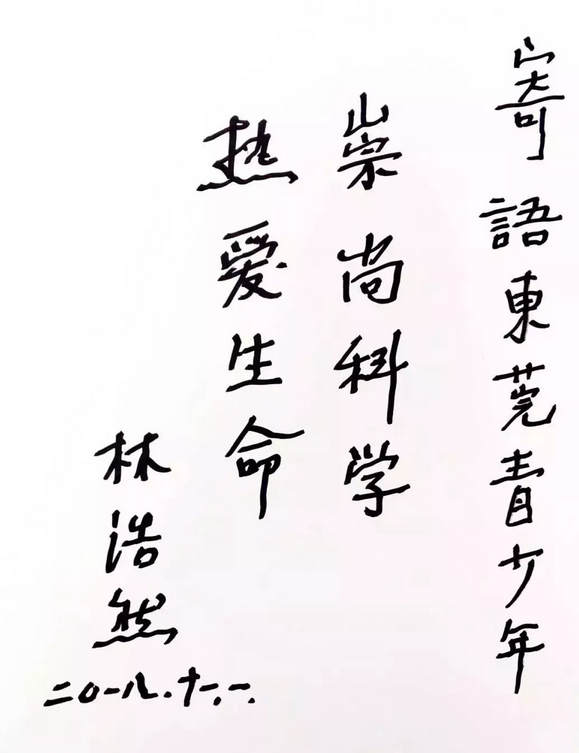 寄語東莞青少年
崇尚科学
热爱生命
林浩然
二〇一八.十一.一.